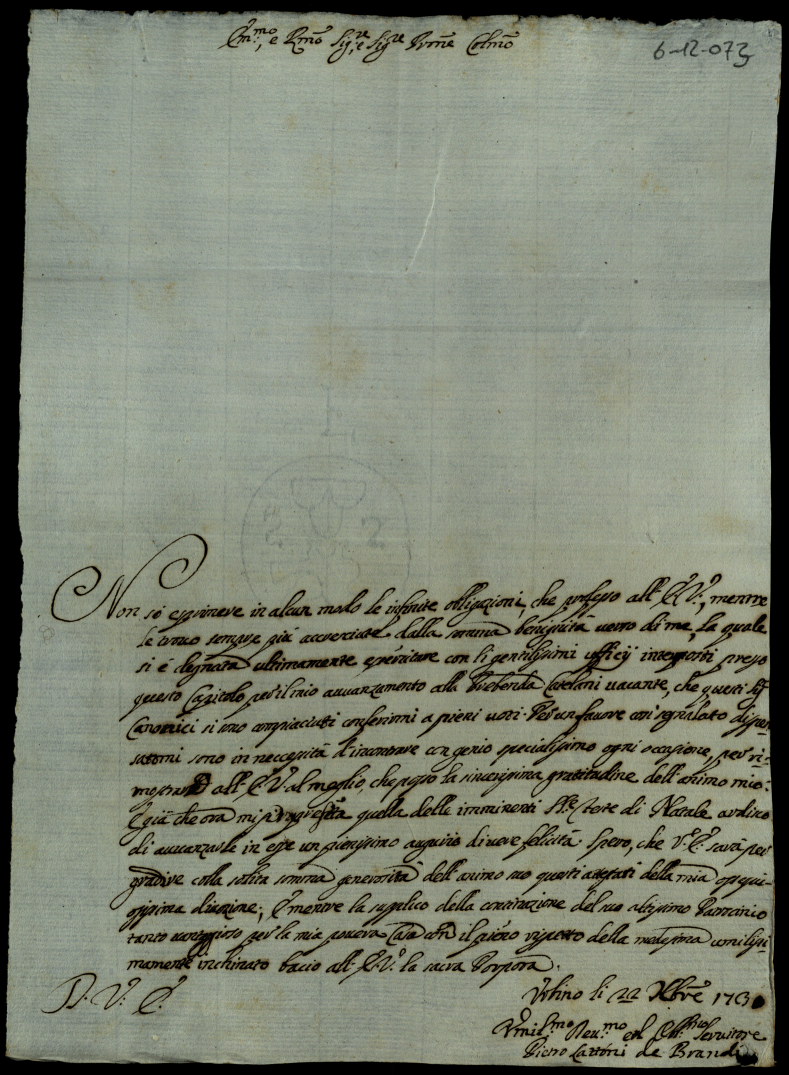 Em.mo, e Rmo Sig.re, e Sig.re Prone Colmo
6-12-073
Non sò esprimere in alcun modo le infinite obligazioni, che professo all' E. V., mentre
le trovo sempre più accresciute dalla somma benignità verso di me, La quale
si è degnata ultimamente esercitare con li gentilissimi ufficij interposti presso
questo Capitolo per il mio avvanzamento alla Prebenda vacante, che questi SS.ri
Canonici si sono compiaciuti conferirmi a pieni voti. Per un favore così segnalato dispen
satomi sono in neccessità d'incontrare con genio specialissimo ogni occasione, per ri-
mostrare all' E. V. al meglio, che posso la sincerissima gratitudine dell' animo mio:
E già che ora mi si quella delle imminenti SS.e Feste di Natale ardisco
di avvanzarle in esse un pienissimo augurio di vere felicità. Spero, che V. E. sarà per
gradire colla solita somma generosità dell' animo suo questi attestati della mia ossequi-
osissima divozione; E mentre la supplico della continuazione del suo altissimo Patrocinio
tanto vantaggioso per la mia povera Casa con il pieno rispetto della medesima umilissi-
mamente inchinato bacio all' E. V. la sacra Porpora.
D. V. E.
Urbino li 22 Xbre 173
Umil.mo Dev.mo ed Obb.mo Servitore
Pietro de Brandi